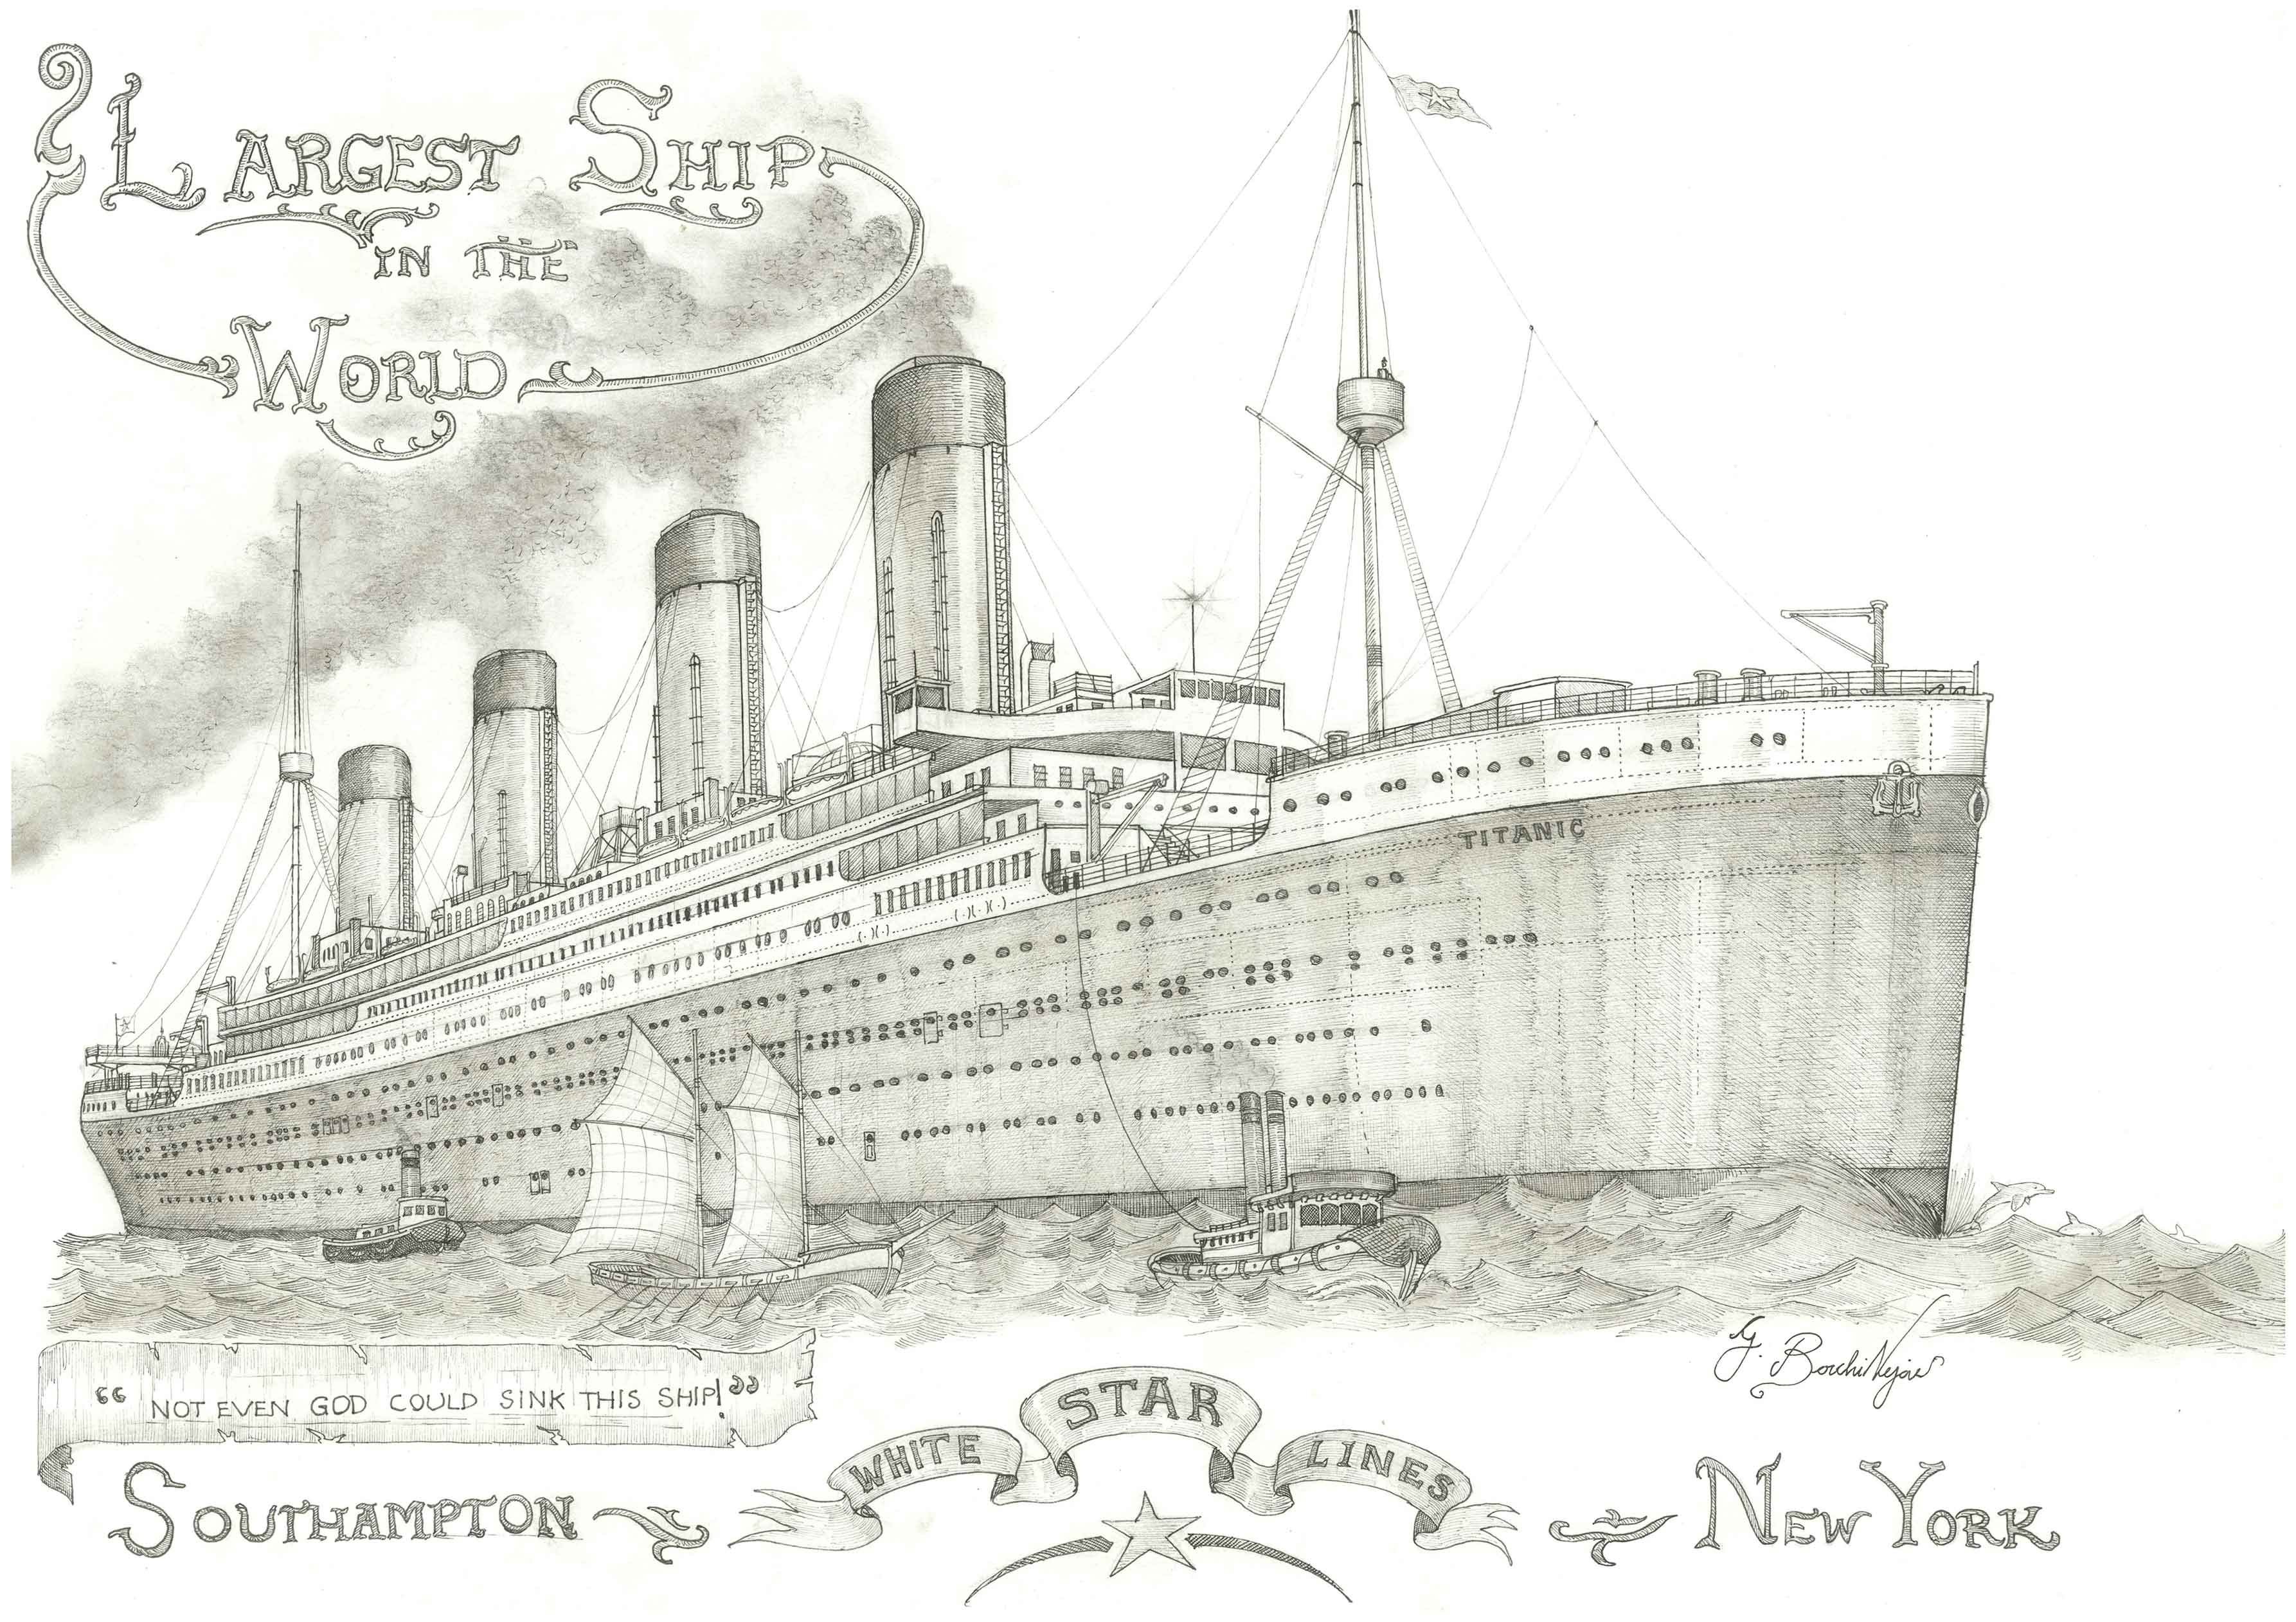 LARGEST SHIP
IN THE
WORLD
TITANIC
“ NOT EVEN GOD COULD SINK THIS SHIP! ”
WHITE STAR LINES
SOUTHAMPTON
NEW YORK